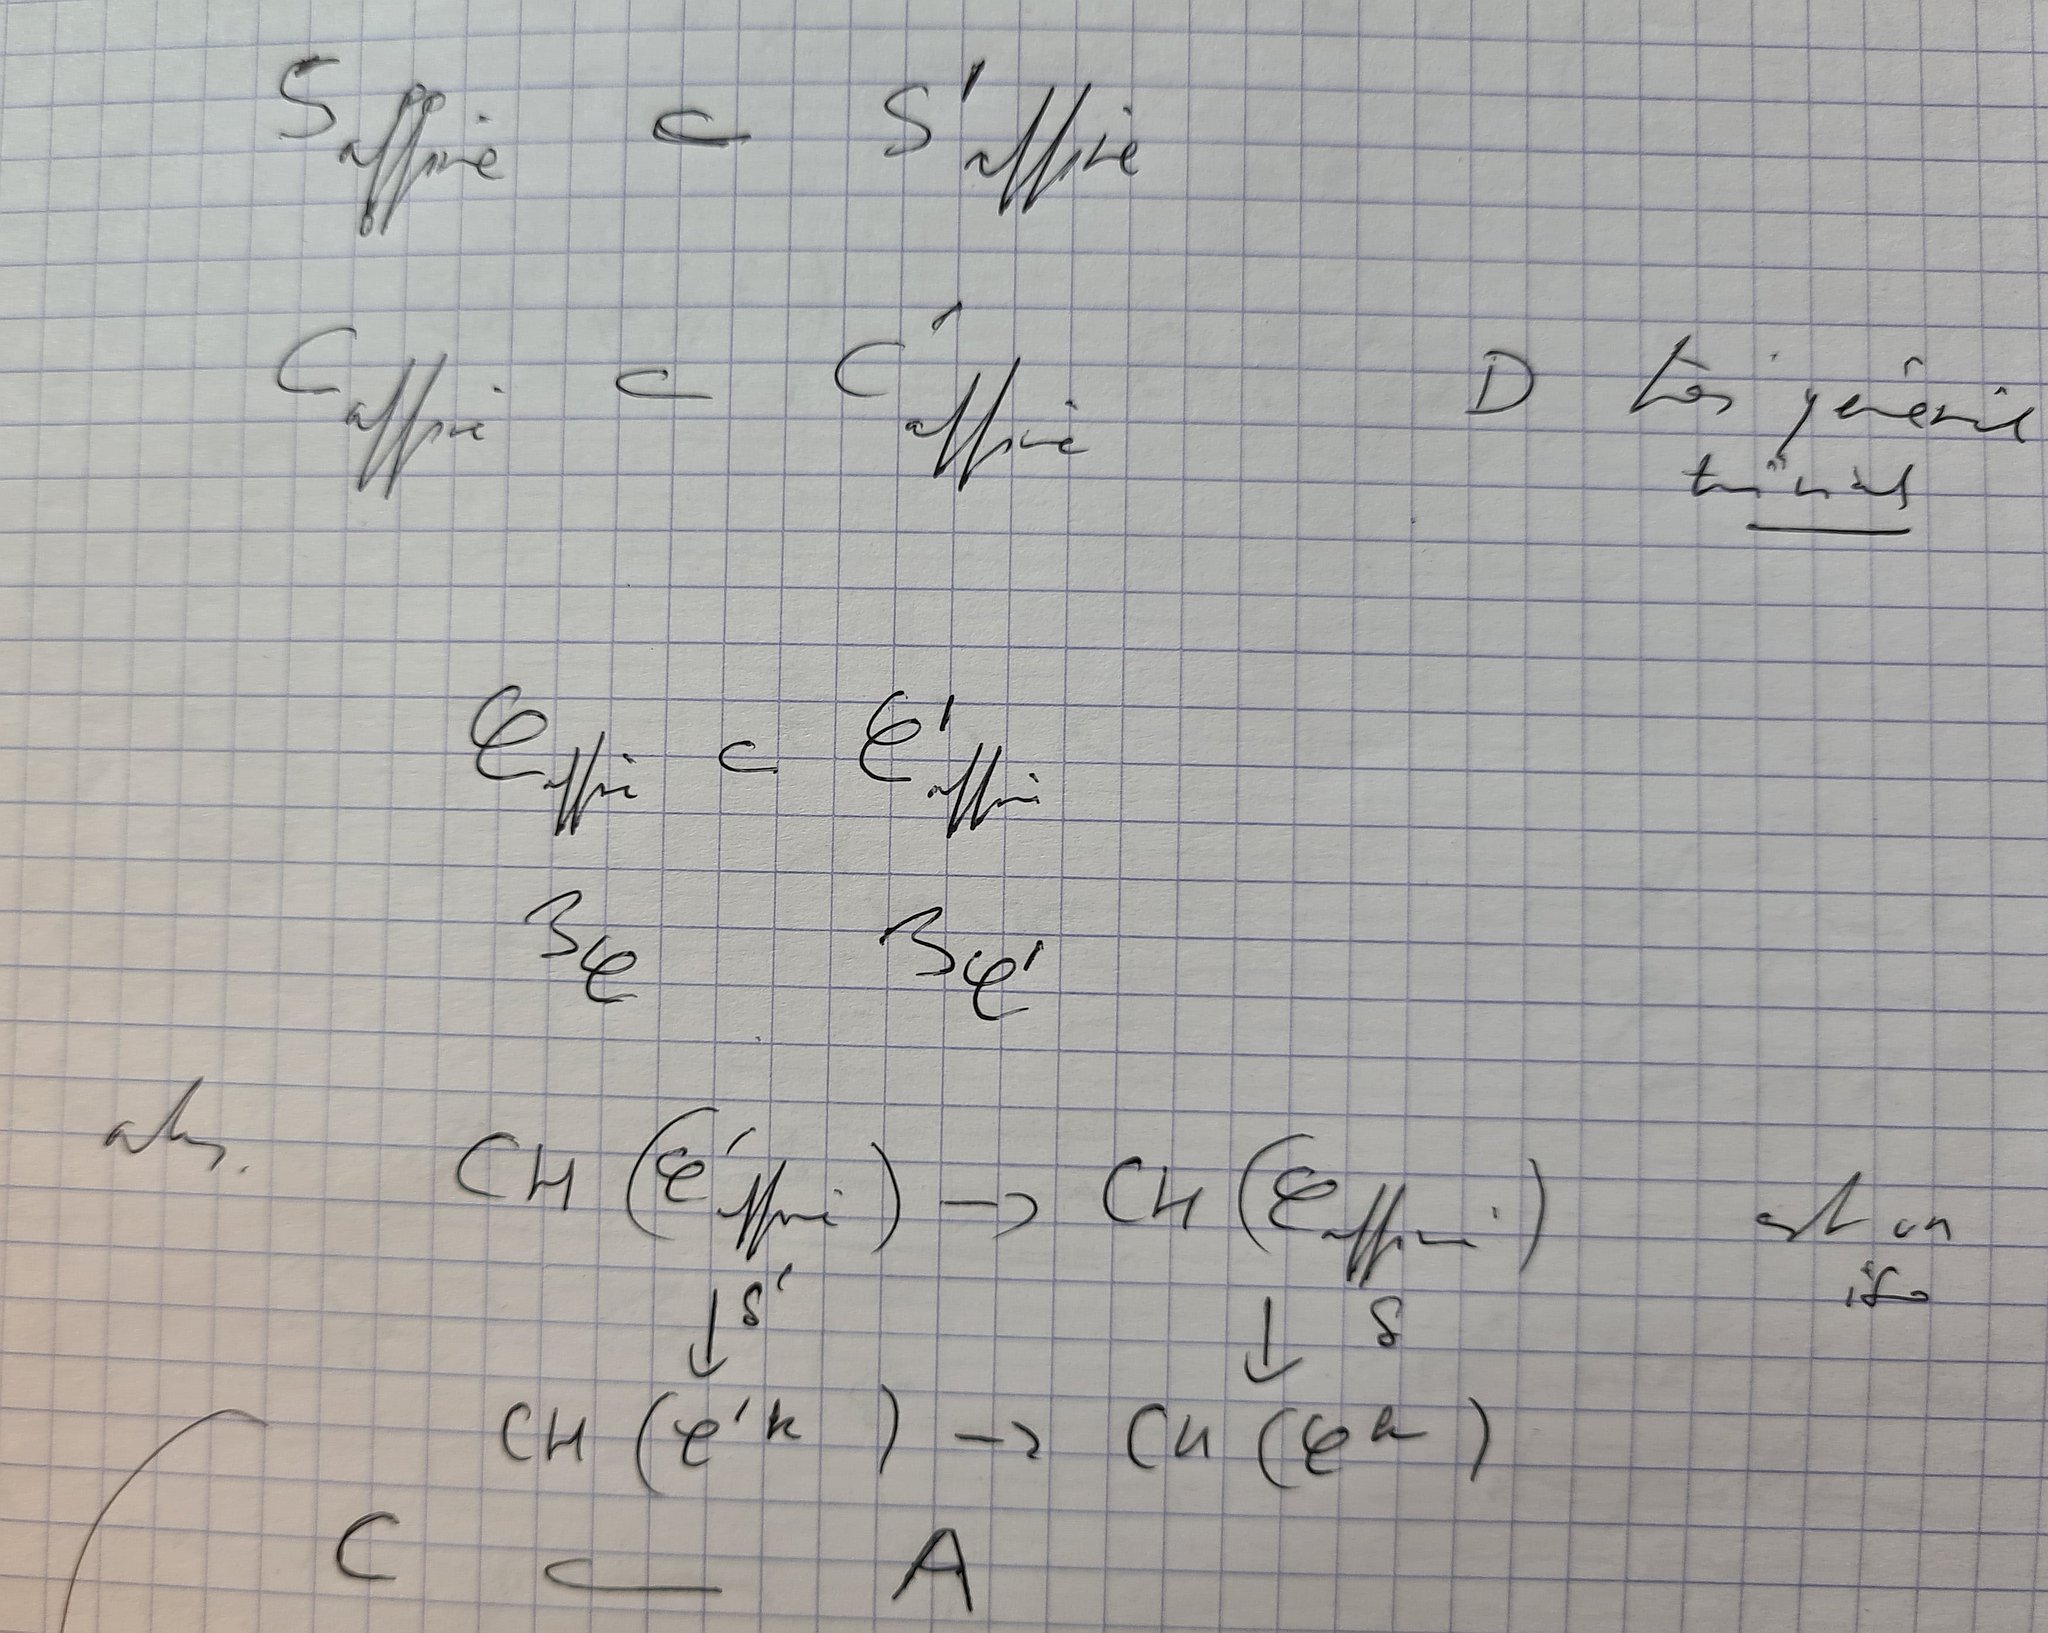 S_affine ⊂ S'_affine
C_affine ⊂ C'_affine D très général
trivial
𝒞_affine ⊂ 𝒞'_affine
3_𝒞 3_𝒞'
alors CH(𝒞'_affine) → CH(𝒞_affine) est un
iso
↓ δ' ↓ δ
CH(𝒞'^k) → CH(𝒞^k)
C ⊂ A